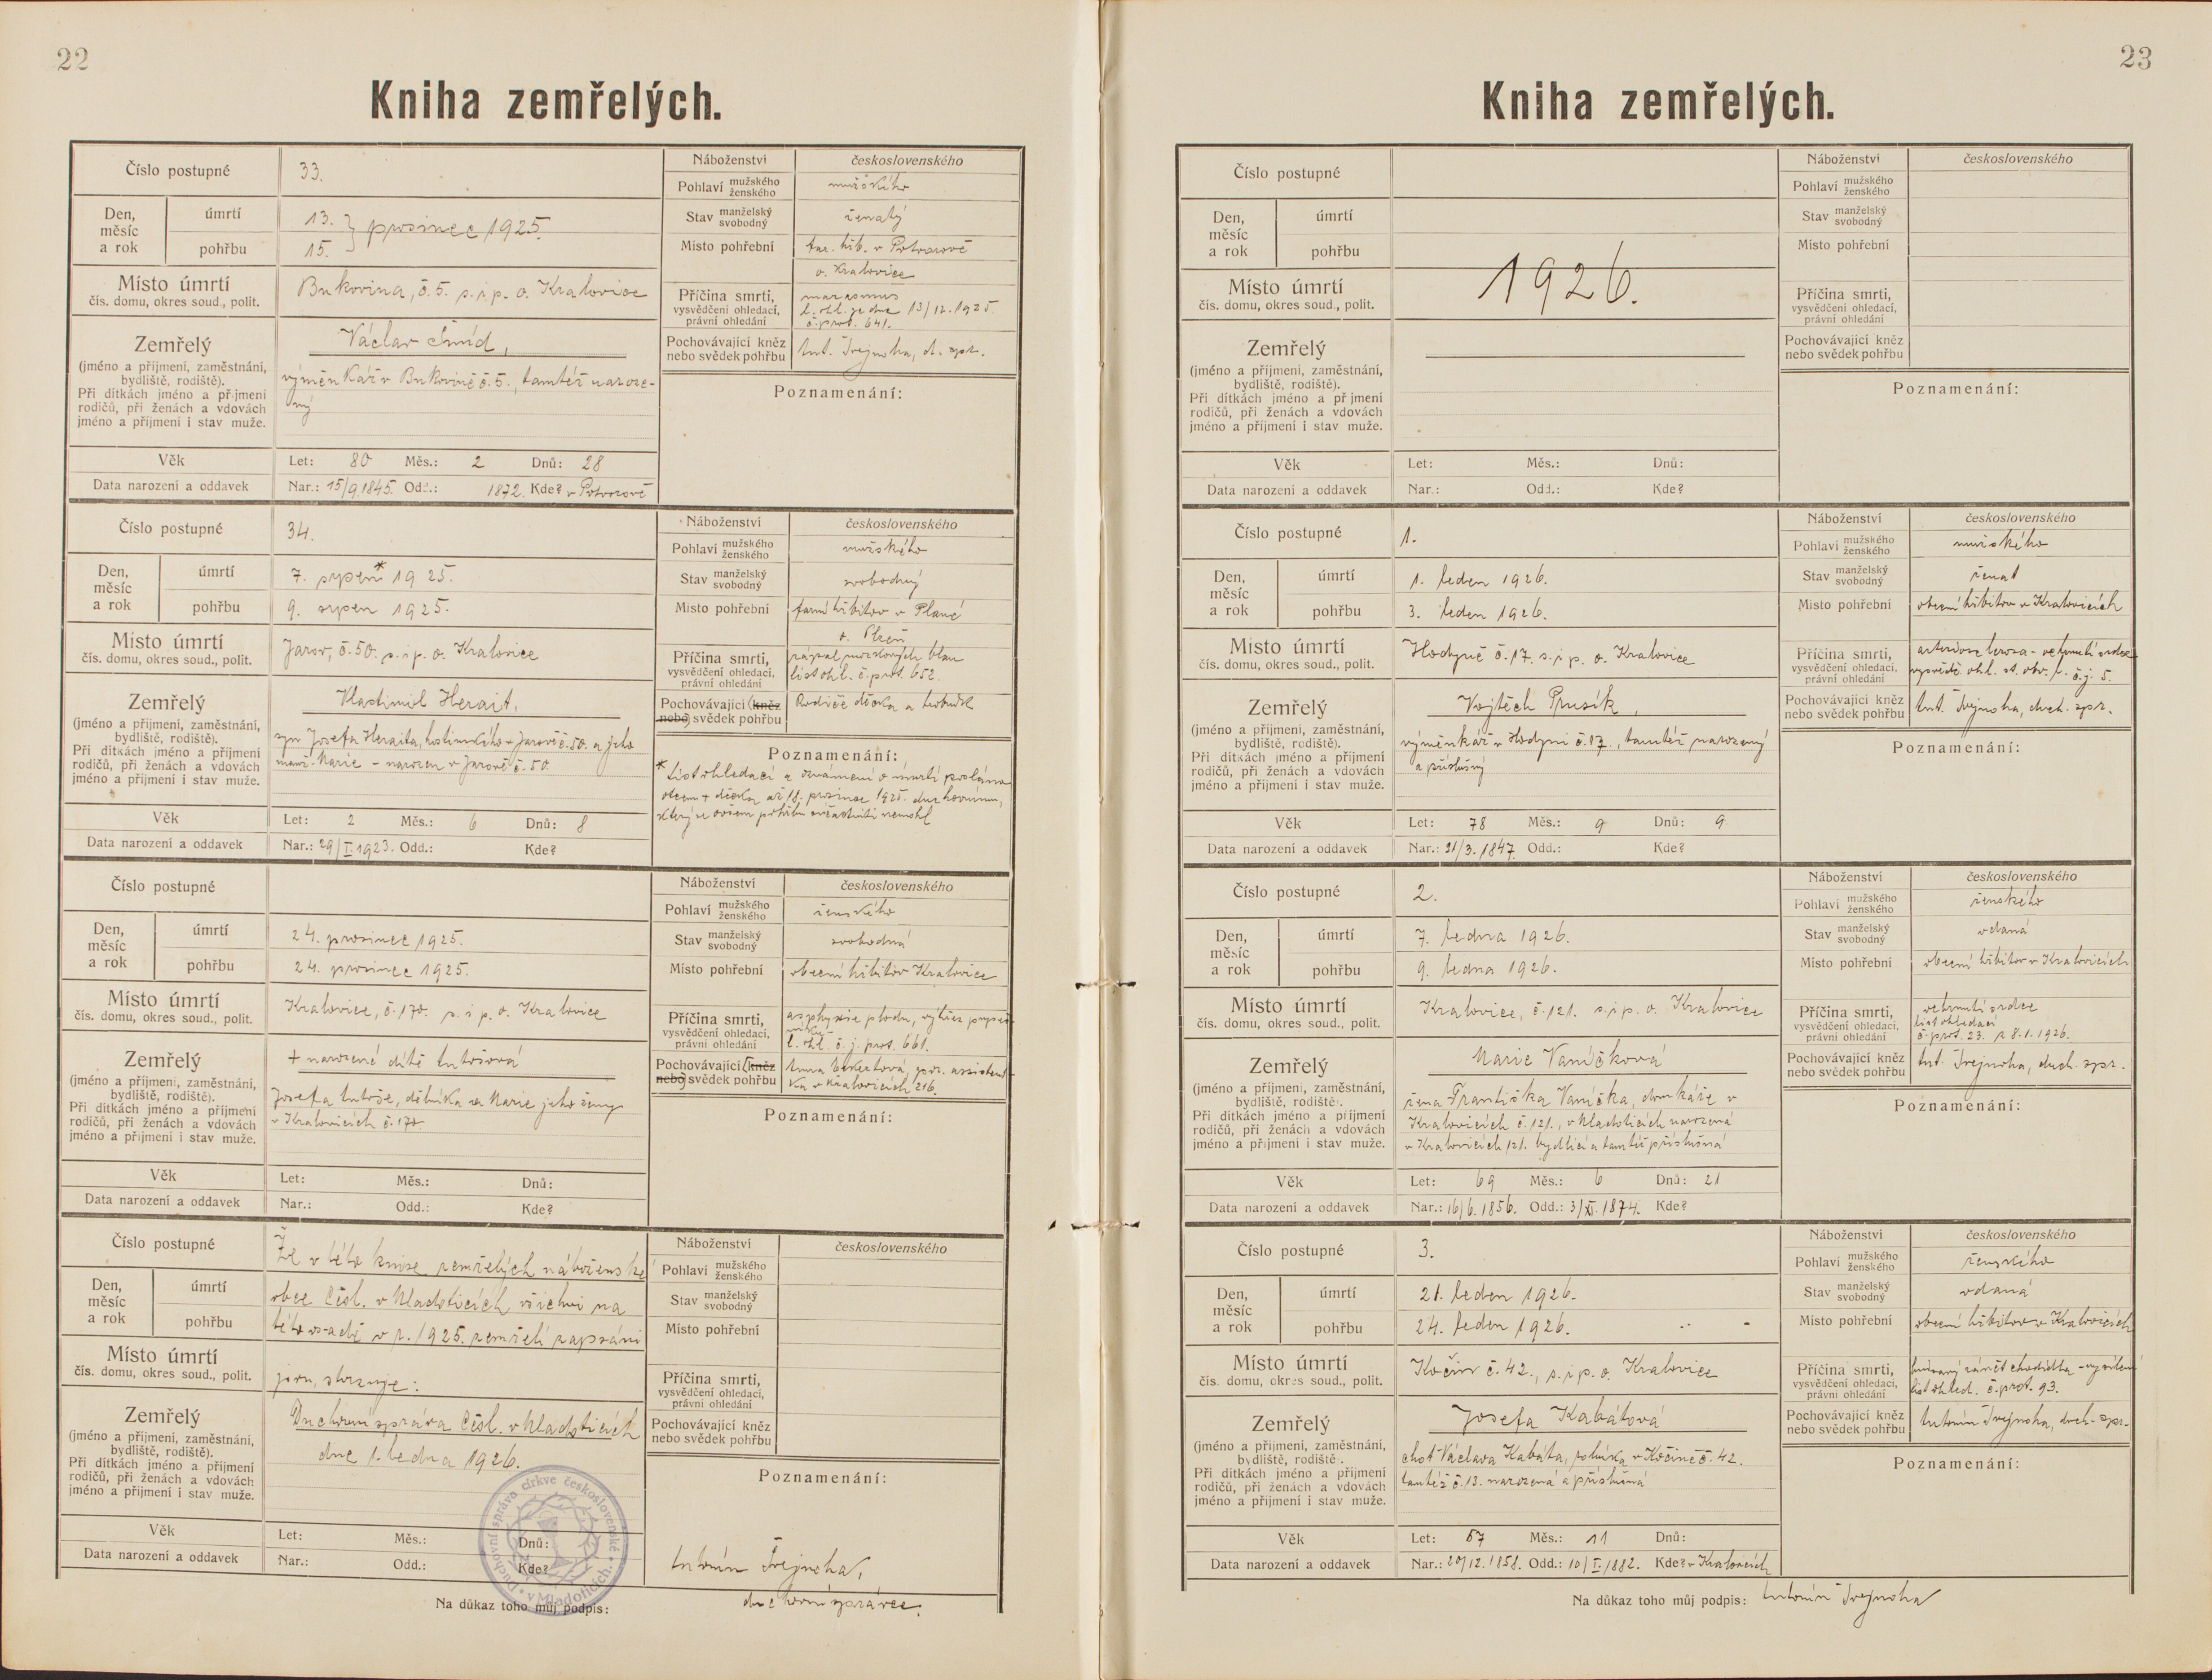 22
Kniha zemřelých.
Číslo postupné 33.
Den, měsíc a rok
úmrtí 13.
pohřbu 15.
} prosinec 1925.
Místo úmrtí
čís. domu, okres soud., polit.
Bukovina, č. 5. s. i p. o. Kralovice
Zemřelý
(jméno a příjmení, zaměstnání,
bydliště, rodiště).
Při dítkách jméno a příjmení
rodičů, při ženách a vdovách
jméno a příjmení i stav muže.
Václav Šmíd,
výměnkář v Bukovině č. 5., tamtéž naroze-
ný
Věk Let: 80 Měs.: 2 Dnů: 28
Data narození a oddavek Nar.: 15/9.1845. Odd.: 1872. Kde? v Potvorově
Náboženství československého
Pohlaví mužského ženského mužského
Stav manželský svobodný ženatý
Místo pohřební far. hřb. v Potvorově
o. Kralovice
Příčina smrti,
vysvědčení ohledací,
právní ohledání
marasmus
l. ohl. ze dne 13/12. 1925.
č. prot. 641.
Pochovávající kněz
nebo svědek pohřbu
Ant. Trejnoha, d. spr.
Poznamenání:
Číslo postupné 34.
Den, měsíc a rok
úmrtí 7. srpen* 1925.
pohřbu 9. srpen 1925.
Místo úmrtí
čís. domu, okres soud., polit.
Jarov, č. 50. s. i p. o. Kralovice
Zemřelý
(jméno a příjmení, zaměstnání,
bydliště, rodiště).
Při dítkách jméno a příjmení
rodičů, při ženách a vdovách
jméno a příjmení i stav muže.
Vlastimil Herait,
syn Josefa Heraita, hostinského v Jarově č. 50. a jeho
manž. Marie – narozen v Jarově č. 50.
Věk Let: 2 Měs.: 6 Dnů: 8
Data narození a oddavek Nar.: 29/I.1923. Odd.: Kde?
Náboženství československého
Pohlaví mužského ženského mužského
Stav manželský svobodný svobodný
Místo pohřební farní hřbitov v Plané
o. Plzeň
Příčina smrti,
vysvědčení ohledací,
právní ohledání
zápal mozkových blan
list ohl. č. prot. 652.
Pochovávající (kněz
nebo) svědek pohřbu
Rodiče dítka a hrobník
Poznamenání:
* List ohledací a oznámení o úmrtí posláno
otcem + dítka až 18. prosince 1925. duchovnímu,
který se ovšem pohřbu súčastniti nemohl
Číslo postupné
Den, měsíc a rok
úmrtí 24. prosinec 1925.
pohřbu 24. prosinec 1925.
Místo úmrtí
čís. domu, okres soud., polit.
Kralovice, č. 170. s. i p. o. Kralovice
Zemřelý
(jméno a příjmení, zaměstnání,
bydliště, rodiště).
Při dítkách jméno a příjmení
rodičů, při ženách a vdovách
jméno a příjmení i stav muže.
+ narozené dítě Antošová
Josefa Antoše, dělníka a Marie jeho ženy
v Kralovicích č. 170.
Věk Let: Měs.: Dnů:
Data narození a oddavek Nar.: Odd.: Kde?
Náboženství československého
Pohlaví mužského ženského ženského
Stav manželský svobodný svobodná
Místo pohřební obecní hřbitov Kralovice
Příčina smrti,
vysvědčení ohledací,
právní ohledání
asphyxie plodu, výhřez
l. ohl. č. j. prot. 661.
Pochovávající (kněz
nebo) svědek pohřbu
Anna por. assistent-
ka v Kralovicích 216.
Poznamenání:
Číslo postupné
Den, měsíc a rok
úmrtí
pohřbu
Místo úmrtí
čís. domu, okres soud., polit.
Zemřelý
(jméno a příjmení, zaměstnání,
bydliště, rodiště).
Při dítkách jméno a příjmení
rodičů, při ženách a vdovách
jméno a příjmení i stav muže.
Že v této knize zemřelých náboženské
obce Čsl. v Mladoticích všichni na
této osadě v r. 1925. zemřelí zapsáni
jsou, stvrzuje:
Duchovní správa Čsl. v Mladoticích
dne 1. ledna 1926.
Duchovní správa církve československé v Mladoticích.
Věk Let: Měs.: Dnů:
Data narození a oddavek Nar.: Odd.: Kde?
Náboženství československého
Pohlaví mužského ženského
Stav manželský svobodný
Místo pohřební
Příčina smrti,
vysvědčení ohledací,
právní ohledání
Pochovávající kněz
nebo svědek pohřbu
Poznamenání:
Na důkaz toho můj podpis:
Antonín Trejnoha,
duchovní správce.
23
Kniha zemřelých.
Číslo postupné
Den, měsíc a rok
úmrtí
pohřbu
1926.
Místo úmrtí
čís. domu, okres soud., polit.
Zemřelý
(jméno a příjmení, zaměstnání,
bydliště, rodiště).
Při dítkách jméno a příjmení
rodičů, při ženách a vdovách
jméno a příjmení i stav muže.
Věk Let: Měs.: Dnů:
Data narození a oddavek Nar.: Odd.: Kde?
Náboženství československého
Pohlaví mužského ženského
Stav manželský svobodný
Místo pohřební
Příčina smrti,
vysvědčení ohledací,
právní ohledání
Pochovávající kněz
nebo svědek pohřbu
Poznamenání:
Číslo postupné 1.
Den, měsíc a rok
úmrtí 1. leden 1926.
pohřbu 3. leden 1926.
Místo úmrtí
čís. domu, okres soud., polit.
Hodyně č. 17. s. i p. o. Kralovice
Zemřelý
(jméno a příjmení, zaměstnání,
bydliště, rodiště).
Při dítkách jméno a příjmení
rodičů, při ženách a vdovách
jméno a příjmení i stav muže.
Vojtěch Prusík,
výměnkář v Hodyni č. 17., tamtéž narozený
a příslušný
Věk Let: 78 Měs.: 9 Dnů: 9
Data narození a oddavek Nar.: 21/3. 1847. Odd.: Kde?
Náboženství československého
Pohlaví mužského ženského mužského
Stav manželský svobodný ženat
Místo pohřební obecní hřbitov v Kralovicích
Příčina smrti,
vysvědčení ohledací,
právní ohledání
arterioskleroza – ochrnutí srdce
vysvědč. ohl. st. obv. l. č. j. 5.
Pochovávající kněz
nebo svědek pohřbu
Ant. Trejnoha, duch. spr.
Poznamenání:
Číslo postupné 2.
Den, měsíc a rok
úmrtí 7. ledna 1926.
pohřbu 9. ledna 1926.
Místo úmrtí
čís. domu, okres soud., polit.
Kralovice, č. 121. s. i p. o. Kralovice
Zemřelý
(jméno a příjmení, zaměstnání,
bydliště, rodiště).
Při dítkách jméno a příjmení
rodičů, při ženách a vdovách
jméno a příjmení i stav muže.
Marie Vaníčková
žena Františka Vaníčka, domkáře v
Kralovicích č. 121., v Mladoticích narozená
v Kralovicích 121. bydlící a tamtéž příslušná
Věk Let: 69 Měs.: 6 Dnů: 21
Data narození a oddavek Nar.: 16/6. 1856. Odd.: 3/XI. 1874. Kde?
Náboženství československého
Pohlaví mužského ženského ženského
Stav manželský svobodný vdaná
Místo pohřební obecní hřbitov v Kralovicích
Příčina smrti,
vysvědčení ohledací,
právní ohledání
ochrnutí srdce
list ohledací
č. prot. 23. z 8. 1. 1926.
Pochovávající kněz
nebo svědek pohřbu
Ant. Trejnoha, duch. spr.
Poznamenání:
Číslo postupné 3.
Den, měsíc a rok
úmrtí 21. leden 1926.
pohřbu 24. leden 1926.
Místo úmrtí
čís. domu, okres soud., polit.
Kočín č. 42., s. i p. o. Kralovice
Zemřelý
(jméno a příjmení, zaměstnání,
bydliště, rodiště).
Při dítkách jméno a příjmení
rodičů, při ženách a vdovách
jméno a příjmení i stav muže.
Josefa Kabátová
choť Václava Kabáta, rolníka v Kočíně č. 42.
tamtéž č. 13. narozená a příslušná
Věk Let: 67 Měs.: 11 Dnů:
Data narození a oddavek Nar.: 20/12. 1858. Odd.: 10/I. 1882. Kde? v Kralovicích
Náboženství československého
Pohlaví mužského ženského ženského
Stav manželský svobodný vdaná
Místo pohřební obecní hřbitov v Kralovicích
Příčina smrti,
vysvědčení ohledací,
právní ohledání
hnisavý zánět chodidla – vysílení
list ohled. č. prot. 93.
Pochovávající kněz
nebo svědek pohřbu
Antonín Trejnoha, duch. spr.
Poznamenání:
Na důkaz toho můj podpis: Antonín Trejnoha